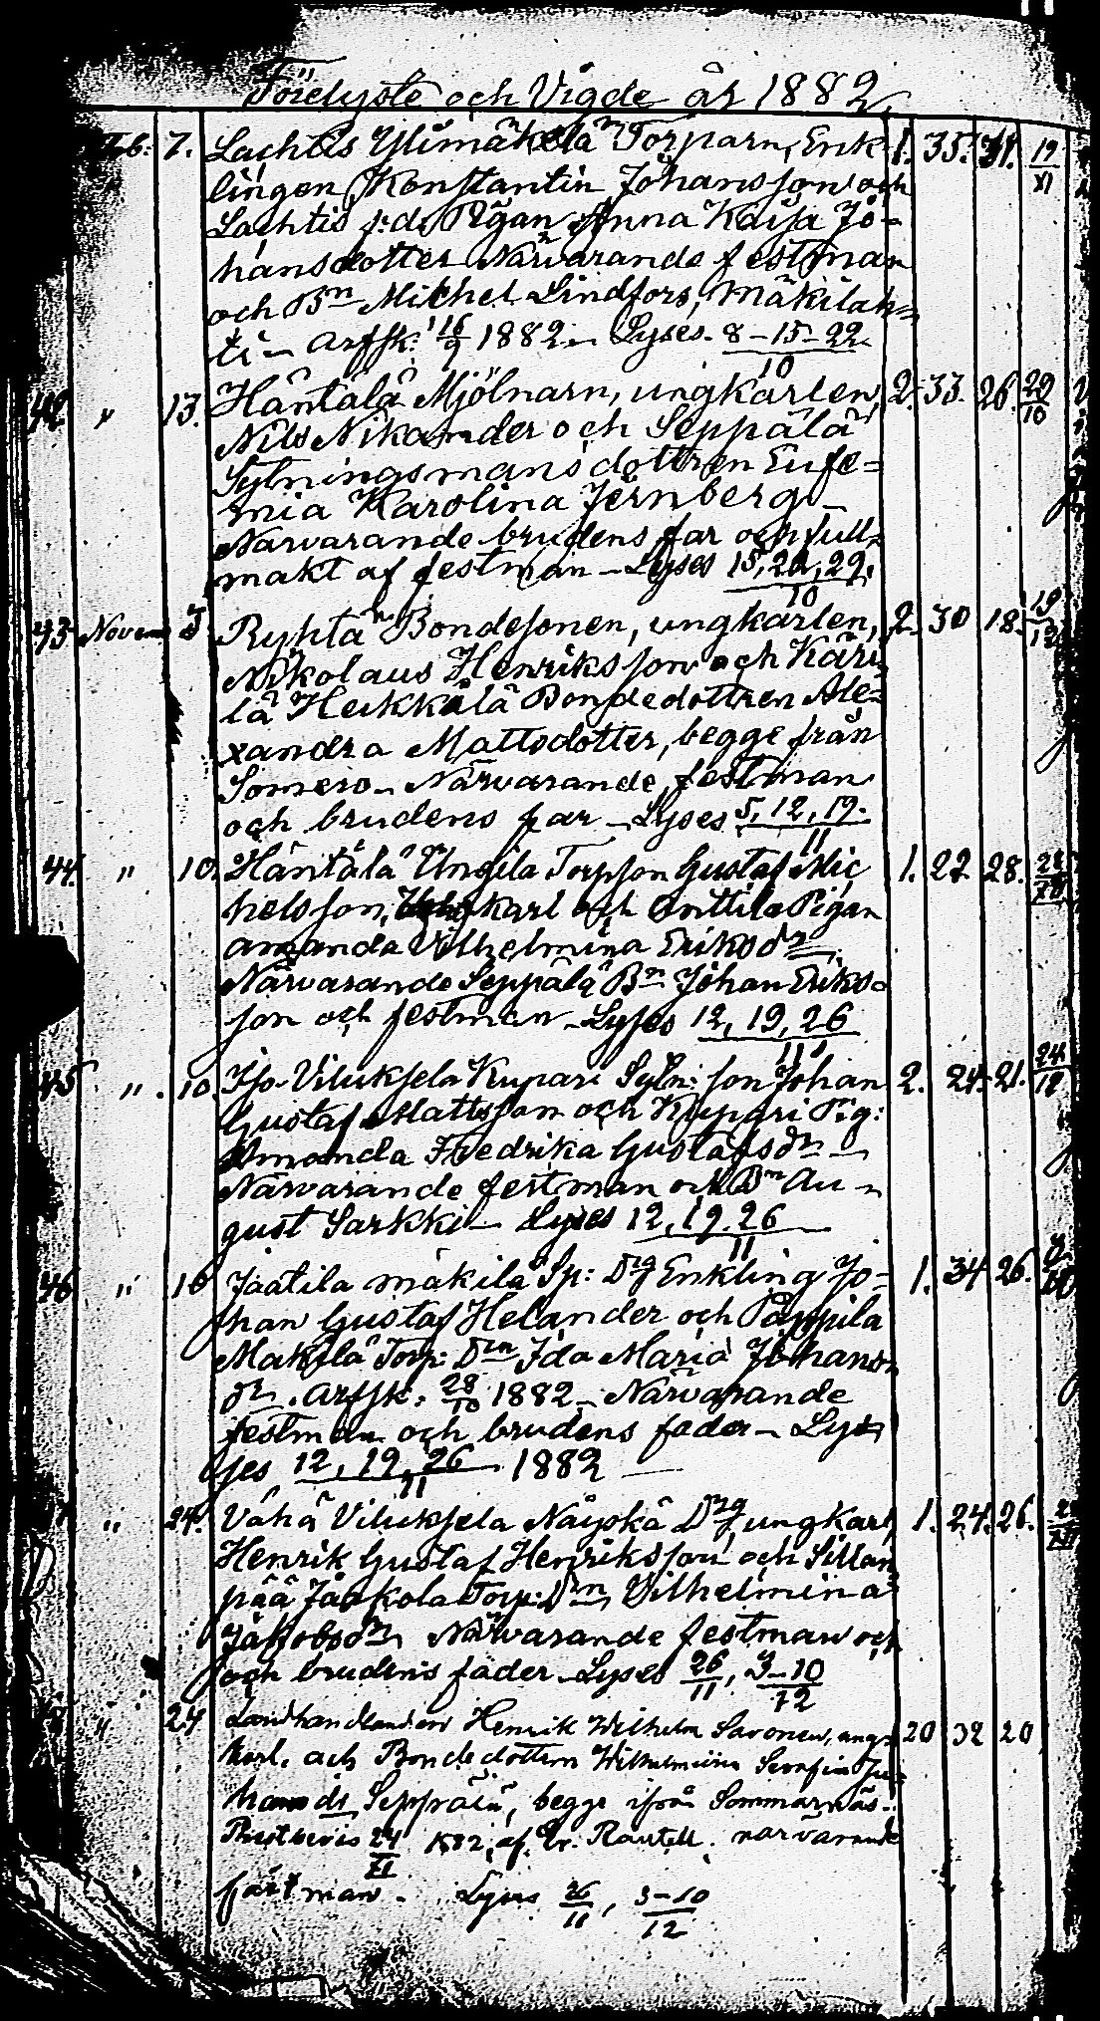 Förelyste och Vigde år 1882
7. Lachtis Ylimäkelä Torparn, Enk- 1. 35. 31. 19/XI
lingen Konstantin Johansson och
Lachtis Pigan Anna Kaisa Jo-
hansdotter Närvarande festman
och Bn Michel Lindfors, Mäkilah-
ti - Arfsk: 16/9 1882 - Lyses 8-15-22/10
42 " 13. Häntälä Mjölnarn, ungkarlen, 2. 33. 26. 29/10
Nils Nikander och Seppälä
Sytningsmansdottren Eufe=
mia Karolina Jernberg -
Närvarande brudens far och full-
makt af festman - Lyses 15, 22, 29/10
43 Novem 3 Ryhtä Bondesonen, ungkarlen, 2. 30 18. 19/12
Nikolaus Henriksson och Käri
lä Heikkälä Bondedottren Ale-
xandra Mattsdotter, begge från
Somero - Närvarande festman
och brudens far - Lyses 5, 12, 19/11
44. " 10. Häntälä Ungila Torpson Gustaf Mic 1. 22 28.
helsson, karl och Anttila Pigan
Amanda Vilhelmina Eriksdr
Närvarande Seppälä Bn Johan Eriks-
son och festman - Lyses 12, 19, 26/11
45 " 10. Iso-Viluksela Kupari Sytn: son Johan 2. 24. 21. 24/12
Gustaf Mattsson och Kupari Pig:
Amanda Fredrika Gustafsdr -
Närvarande festman och Bn Au-
gust Sarkki - Lyses 12, 19, 26/11
46 " 10 Jaatila mäkilä Sp: Drg Enkling Jo= 1. 34 26.
han Gustaf Helander och Pappila
Mäkilä Torp: Drn Ida Maria Johans
dr. Arfsk: 28/10 1882 - Närvarande
festman och brudens fader - Ly
ses 12, 19, 26/11 1882
" 24. Vähä Viluksela Näykä Drg ungkarl, 1. 24. 26.
Henrik Gustaf Henriksson och Sillan
pää Jaakola Torp: Drn Vilhelmina
Jakobsdr Närvarande festman och
och brudens fader - Lyses 26/11, 3-10/12
" 24 Landhandlanden Henrik Wilhelm Savonen, ung- 20 32 20
karl, och Bondedottern Wilhelmina Serafin Ju-
hansdr Seppälä, begge ifrån Sommarnäs.
Prestbevis 24/XI 1882, af närvarande
fästman. Lyses 26/11, 3-10/12